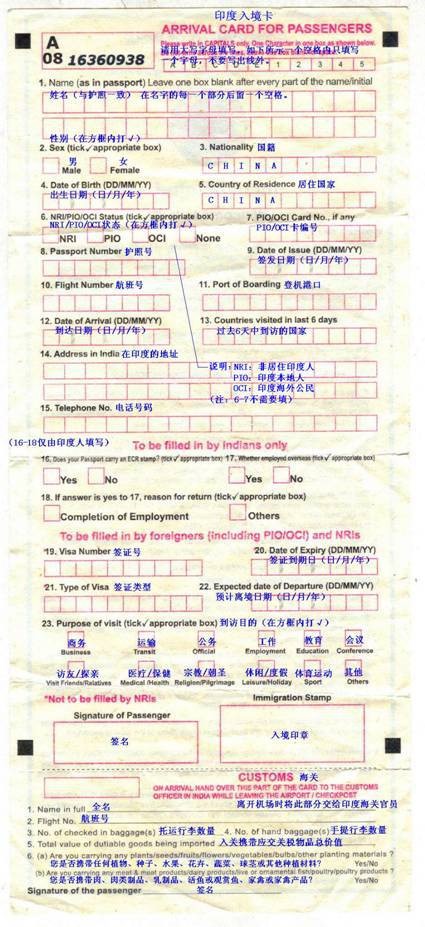 印度入境卡
ARRIVAL CARD FOR PASSENGERS
Please write in CAPITALS only. One Character in one box as shown below.
请用大写字母填写。如下所示一个空格内只填写
一个字母，不要写出线外。
A B C D E 1 2 3 4 5
A
08 16360938
1. Name (as in passport) Leave one box blank after every part of the name/initial
姓名（与护照一致） 在名字的每一个部分后留一个空格。
性别（在方框内打√）
2. Sex (tick✓appropriate box) 3. Nationality 国籍
男 女
Male Female
C H I N A
4. Date of Birth (DD/MM/YY) 5. Country of Residence 居住国家
出生日期（日/月/年）
C H I N A
6. NRI/PIO/OCI Status (tick✓appropriate box) 7. PIO/OCI Card No., if any
NRI/PIO/OCI状态（在方框内打√） PIO/OCI卡编号
NRI PIO OCI None
8. Passport Number 护照号 9. Date of Issue (DD/MM/YY)
签发日期（日/月/年）
10. Flight Number 航班号 11. Port of Boarding 登机港口
12. Date of Arrival (DD/MM/YY) 13. Countries visited in last 6 days
到达日期（日/月/年） 过去6天中到访的国家
14. Address in India 在印度的地址
说明:NRI: 非居住印度人
PIO: 印度本地人
OCI: 印度海外公民
（注: 6-7不需要填）
15. Telephone No. 电话号码
(16-18仅由印度人填写)
To be filled in by Indians only
16. Does your Passport carry an ECR stamp? (tick✓appropriate box) 17. Whether employed overseas (tick✓appropriate box)
Yes No Yes No
18. If answer is yes to 17, reason for return (tick✓appropriate box)
Completion of Employment Others
To be filled in by foreigners (including PIO/OCI) and NRIs
*19. Visa Number 签证号 *20. Date of Expiry (DD/MM/YY)
签证到期日（日/月/年）
*21. Type of Visa 签证类型 22. Expected date of Departure (DD/MM/YY)
预计离境日期（日/月/年）
23. Purpose of visit (tick✓appropriate box) 到访目的（在方框内打√）
商务 运输 公务 工作 教育 会议
Business Transit Official Employment Education Conference
访友/探亲 医疗/保健 宗教/朝圣 休闲/度假 体育运动 其他
Visit Friends/Relatives Medical /Health Religion/Pilgrimage Leisure/Holiday Sport Others
*Not to be filled by NRIs Immigration Stamp
Signature of Passenger
签名 入境印章
CUSTOMS 海关
ON ARRIVAL HAND OVER THIS PART OF THE CARD TO THE CUSTOMS
OFFICER IN INDIA WHILE LEAVING THE AIRPORT / CHECKPOST
离开机场时将此部分交给印度海关官员
1. Name in full 全名
2. Flight No. 航班号
3. No. of checked in baggage(s) 托运行李数量 4. No. of hand baggage(s) 手提行李数量
5. Total value of dutiable goods being imported 入关携带应交关税物品总价值
6. (a) Are you carrying any plants/seeds/fruits/flowers/vegetables/bulbs/other planting materials ?
您是否携带任何植物、种子、水果、花卉、蔬菜、球茎或其他种植材料? Yes/No
(b) Are you carrying any meat & meat products/dairy products/live or ornamental fish/poultry/poultry products ?
您是否携带肉、肉类制品、乳制品、活鱼或观赏鱼、家禽或家禽产品? Yes/No
Signature of the passenger 签名